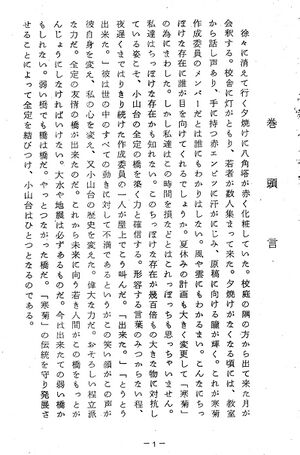 巻頭言
徐々に消えて行く夕焼けに八角塔が赤く化粧していた。校庭の隅の方から出て来た月が
会釈する。校舎に灯がともり、若者が数人集まって来た。夕焼けがなくなる頃には、教室
から話し声あり、手に持つ赤エンピツに汗がにじみ、原稿に向ける瞳が輝く。これが寒菊
作成委員のメンバーだとは誰にもわかりはしない。風や雲にもわかるまい。こんなにちっ
ぽけな存在に誰が目を向けてくれるでしょうか。夏休みの計画も大きく変更して「寒菊」
の為にまわした。しかし私達はこの時間を損などとはこれっぽっちも思っちゃいません。
私達はちっぽけな存在かも知れない。このちっぽけな存在が幾百倍もの大きな物に対抗し
ている姿こそ、小山台の全定の橋を築く力と確信する。形容する言葉のみつからない程、
夜遅くまではりきり続けた作成委員の一人が屋上でこう叫んだ。「出来た。」「とうとう
出来た。」彼は世の中のすべての動きに対して不満であるというがこの笑い顔がこの声が
彼自身を変え、私の心を変え、又小山台の歴史を変えた。偉大な力だ。おそろしい程立派
な力だ。全定の友情の橋が出来たのだ。これから未来に向う若き人間がこの橋をもっとが
んじょうにしなければいけない。大水や地震は必ずあるものだ。今は出来たての弱い橋か
もしれない。弱い橋でも橋は橋だ。やっとつながった橋だ。「寒菊」の伝統を守り発展さ
せることによって全定を結びつけ、小山台はひとつとなるのである。
－1－